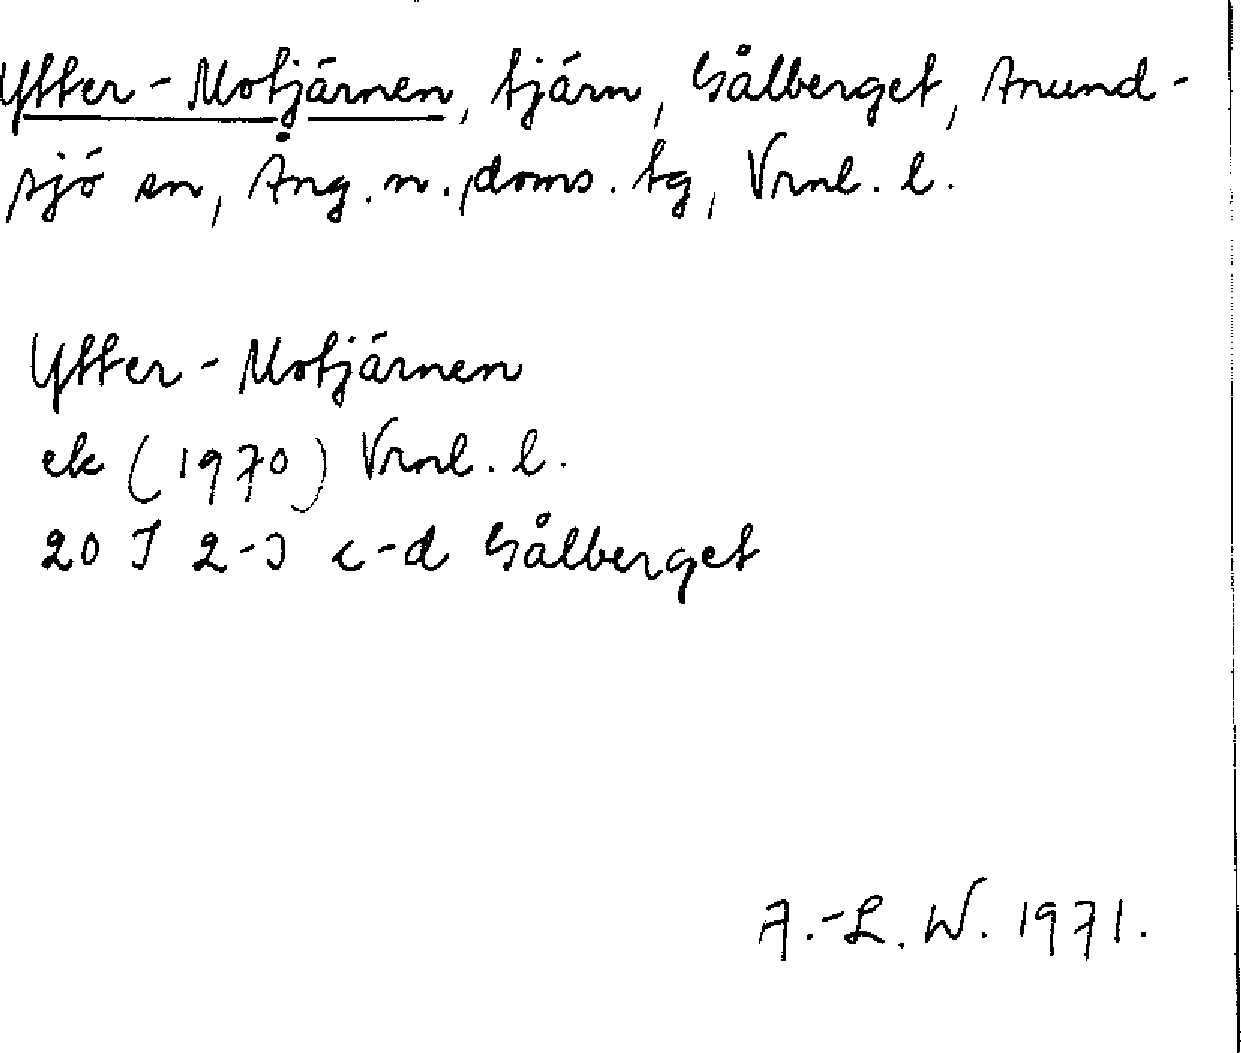 Ytter-Motjärnen, tjärn, Sålberget, Anund-
sjö sn, Ång. n., doms. tg, Vrnl. l.
Ytter-Motjärnen
ek (1970) Vrnl. l.
20 I 2-3 c-d Sålberget
A.-L. W. 1971.